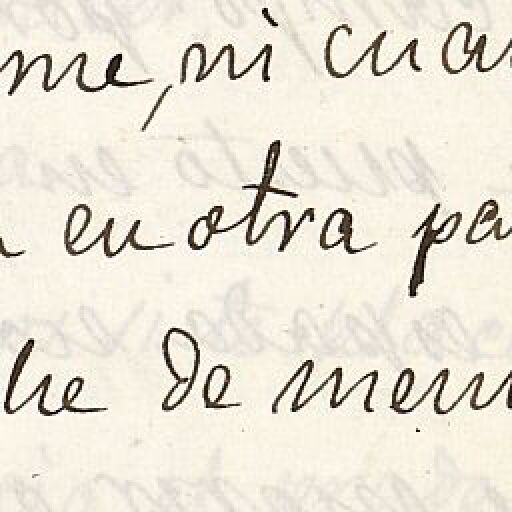 me, ni cua
en otra pa
he de mem